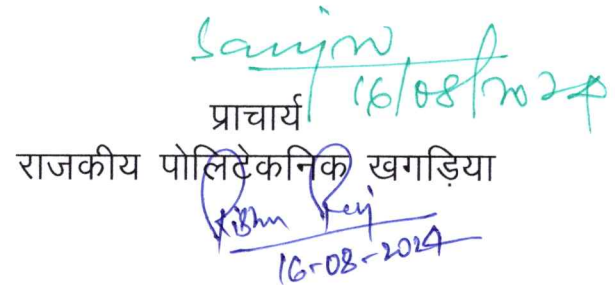 Sanjw
16/08/2024
प्राचार्य
राजकीय पोलिटेकनिक खगड़िया
Rishu Raj
16-08-2024